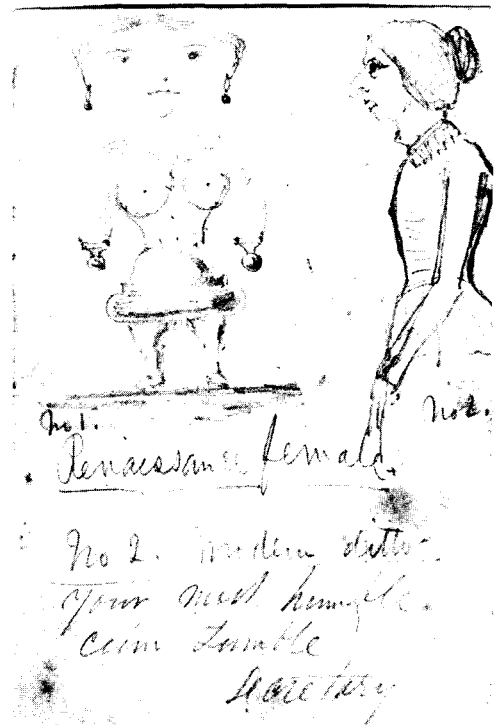 No 1.
No 2.
Renaissance female.
No 2. modern ditto.
Your most humble.
Secretary